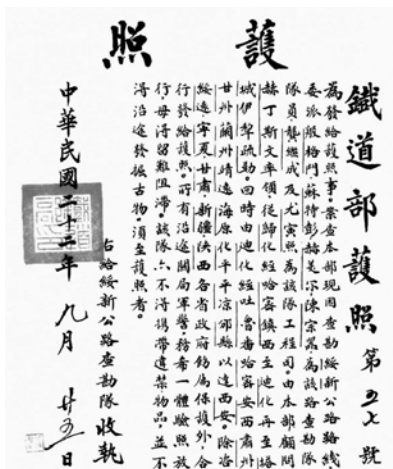 護照
鐵道部護照 第五七號
為發給護照事案查本部現因查勘綏新公路路線
委派般格門蘇特彭赫美尔陳宗器為該路查勘隊
隊員龔繼成及尤寅照為該隊工程司由本部顧問
赫丁斯文率領從歸化經哈密鎮西至迪化再至塔
城伊犁疏勒回時由迪化經吐魯番哈密安西肅州
甘州蘭州靖遠海原化平平凉邠縣以達西安除咨
綏遠寧夏甘肅新疆陝西各省政府飭屬保護外合
行發給護照所有沿途關局軍警務希一體驗照放
行毋得留難阻滯該隊亦不得携帶違禁物品並不
得沿途發掘古物須至護照者
右給綏新公路查勘隊收執
中華民國二十二年九月廿五日